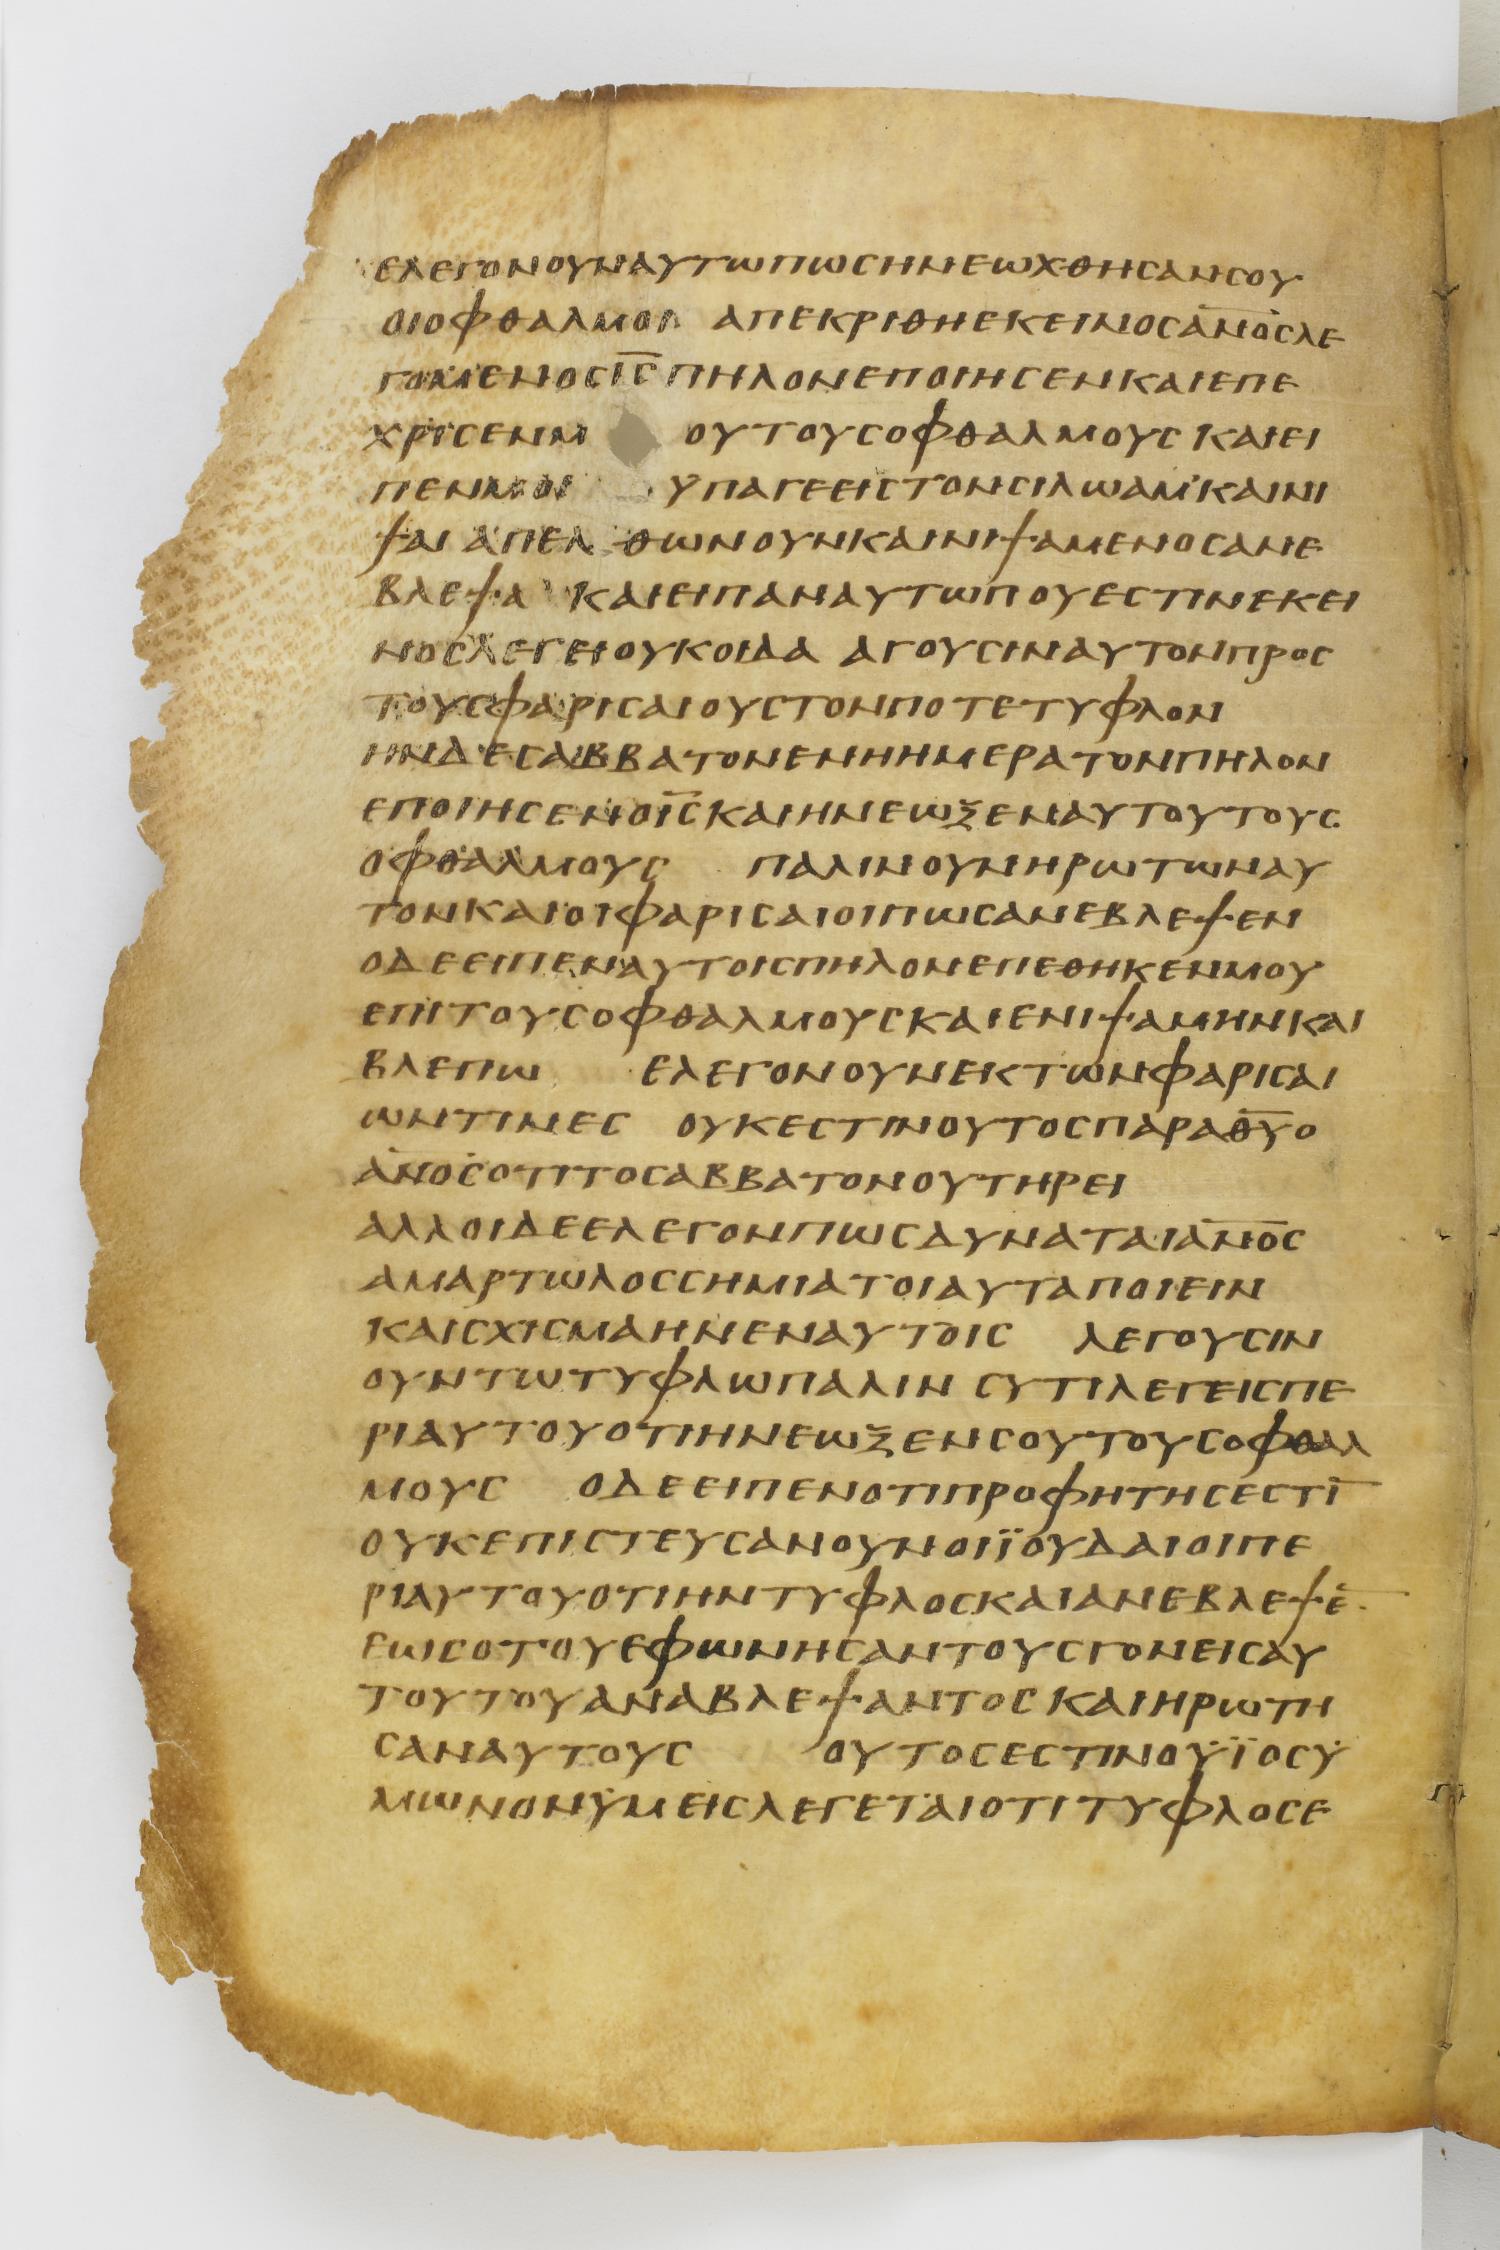 ΕΛΕΓΟΝΟΥΝΑΥΤΩΠΩΣΗΝΕΩΧΘΗΣΑΝΣΟΥ
ΟΙΟΦΘΑΛΜΟΙ ΑΠΕΚΡΙΘΗΕΚΕΙΝΟΣΑ̅Ν̅Ο̅Σ̅ΛΕ
ΓΟΜΕΝΟΣΙ̅Σ̅ ΠΗΛΟΝΕΠΟΙΗΣΕΝΚΑΙΕΠΕ
ΧΡΙΣΕΝΜ ΟΥΤΟΥΣΟΦΘΑΛΜΟΥΣΚΑΙΕΙ
ΠΕΝΜΟΙ ΥΠΑΓΕΕΙΣΤΟΝΣΙΛΩΑΜ ̓ΚΑΙΝΙ
ΨΑΙ ΑΠΕΛ ΘΩΝΟΥΝΚΑΙΝΙΨΑΜΕΝΟΣΑΝΕ
ΒΛΕΨΑ ΚΑΙΕΙΠΑΝΑΥΤΩΠΟΥΕΣΤΙΝΕΚΕΙ
ΝΟΣΛΕΓΕΙΟΥΚΟΙΔΑ ΑΓΟΥΣΙΝΑΥΤΟΝΠΡΟΣ
ΤΟΥΣΦΑΡΙΣΑΙΟΥΣΤΟΝΠΟΤΕΤΥΦΛΟΝ
ΗΝΔΕΣΑΒΒΑΤΟΝΕΝΗΗΜΕΡΑΤΟΝΠΗΛΟΝ
ΕΠΟΙΗΣΕΝΟΙ̅Σ̅ΚΑΙΗΝΕΩΞΕΝΑΥΤΟΥΤΟΥΣ
ΟΦΘΑΛΜΟΥΣ ΠΑΛΙΝΟΥΝΗΡΩΤΩΝΑΥ
ΤΟΝΚΑΙΟΙΦΑΡΙΣΑΙΟΙΠΩΣΑΝΕΒΛΕΨΕΝ
ΟΔΕΕΙΠΕΝΑΥΤΟΙΣΠΗΛΟΝΕΠΕΘΗΚΕΝΜΟΥ
ΕΠΙΤΟΥΣΟΦΘΑΛΜΟΥΣΚΑΙΕΝΙΨΑΜΗΝΚΑΙ
ΒΛΕΠΩ ΕΛΕΓΟΝΟΥΝΕΚΤΩΝΦΑΡΙΣΑΙ
ΩΝΤΙΝΕΣ ΟΥΚΕΣΤΙΝΟΥΤΟΣΠΑΡΑΘ̅Υ̅Ο
Α̅Ν̅Ο̅Σ̅ΟΤΙΤΟΣΑΒΒΑΤΟΝΟΥΤΗΡΕΙ
ΑΛΛΟΙΔΕΕΛΕΓΟΝΠΩΣΔΥΝΑΤΑΙΑ̅Ν̅Ο̅Σ̅
ΑΜΑΡΤΩΛΟΣΣΗΜΙΑΤΟΙΑΥΤΑΠΟΙΕΙΝ
ΚΑΙΣΧΙΣΜΑΗΝΕΝΑΥΤΟΙΣ ΛΕΓΟΥΣΙΝ
ΟΥΝΤΩΤΥΦΛΩΠΑΛΙΝ ΣΥΤΙΛΕΓΕΙΣΠΕ
ΡΙΑΥΤΟΥΟΤΙΗΝΕΩΞΕΝΣΟΥΤΟΥΣΟΦΘΑΛ
ΜΟΥΣ ΟΔΕΕΙΠΕΝΟΤΙΠΡΟΦΗΤΗΣΕΣΤΙ̅
ΟΥΚΕΠΙΣΤΕΥΣΑΝΟΥΝΟΙΪΟΥΔΑΙΟΙΠΕ
ΡΙΑΥΤΟΥΟΤΙΗΝΤΥΦΛΟΣΚΑΙΑΝΕΒΛΕΨΕ̅
ΕΩΣΟΤΟΥΕΦΩΝΗΣΑΝΤΟΥΣΓΟΝΕΙΣΑΥ
ΤΟΥΤΟΥΑΝΑΒΛΕΨΑΝΤΟΣΚΑΙΗΡΩΤΗ
ΣΑΝΑΥΤΟΥΣ ΟΥΤΟΣΕΣΤΙΝΟΫΪΟΣΫ
ΜΩΝΟΝΫΜΕΙΣΛΕΓΕΤΑΙΟΤΙΤΥΦΛΟΣΕ